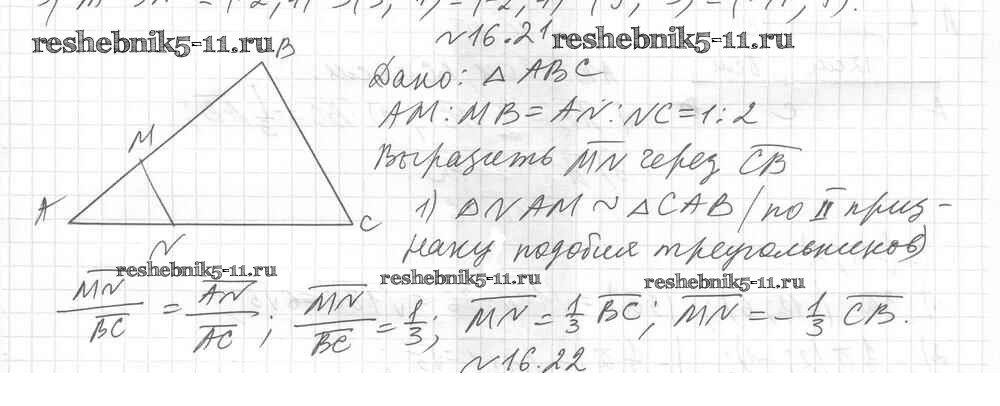 №16.21
reshebnik5-11.ru
reshebnik5-11.ru
B
M
A
C
N
Дано: △ ABC
AM : MB = AN : NC = 1 : 2
Выразить MN через CB
1) △NAM ~ △CAB (по II приз-
наку подобия треугольников)
reshebnik5-11.ru
reshebnik5-11.ru
reshebnik5-11.ru
MN/BC = AN/AC ; MN/BC = 1/3 ; MN = 1/3 BC ; MN = - 1/3 CB.
№16.22